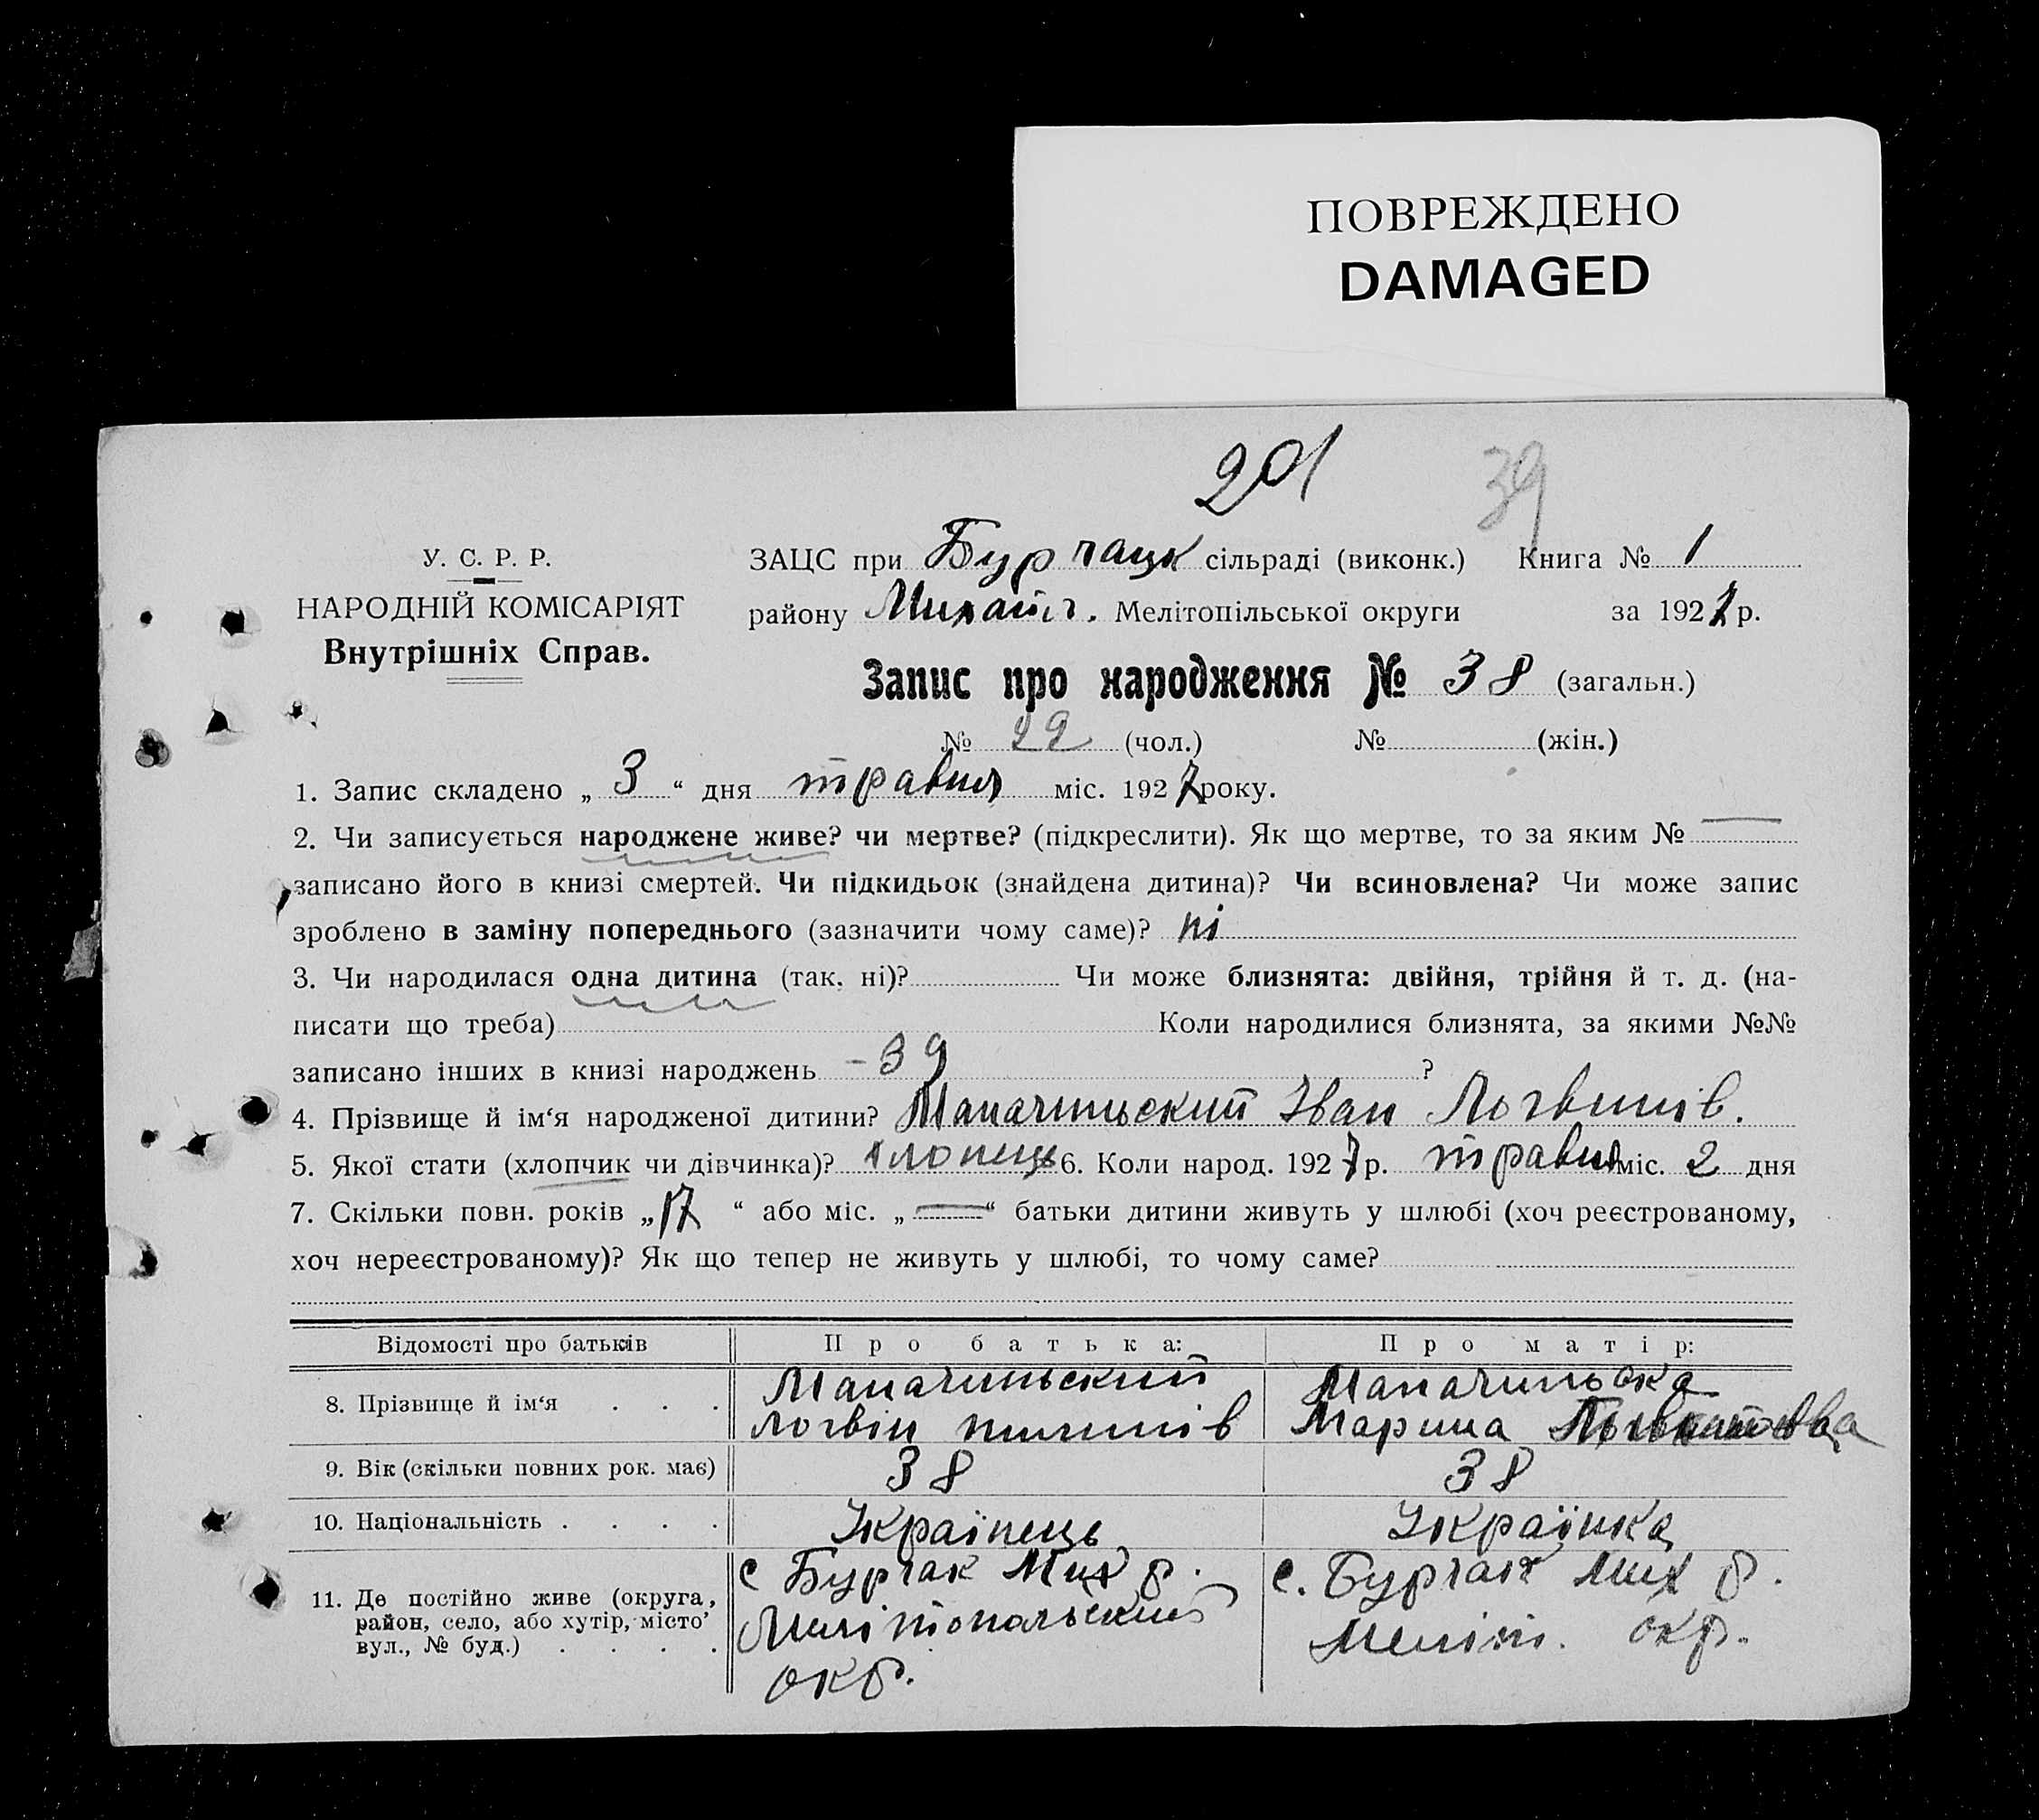 ПОВРЕЖДЕНО
DAMAGED
201 39
У. С. Р. Р.
НАРОДНІЙ КОМІСАРІЯТ
Внутрішніх Справ.
ЗАЦС при Бурчацк сільраді (виконк.) Книга № 1
району Михайл. Мелітопільської округи за 1927 р.
Запис про народження № 38 (загальн.)
№ 22 (чол.) № (жін.)
1. Запис складено „ 3 “ дня травня міс. 1927 року.
2. Чи записується народжене живе? чи мертве? (підкреслити). Як що мертве, то за яким № —
записано його в книзі смертей. Чи підкидьок (знайдена дитина)? Чи всиновлена? Чи може запис
зроблено в заміну попереднього (зазначити чому саме)? ні
3. Чи народилася одна дитина (так, ні)? Чи може близнята: двійня, трійня й т. д. (на-
писати що треба) Коли народилися близнята, за якими №№
записано інших в книзі народжень - 39 ?
4. Прізвище й ім‘я народженої дитини? Мапачиньский Іван Логвинів.
5. Якої стати (хлопчик чи дівчинка)? хлопець 6. Коли народ. 1927 р. травня міс. 2 дня
7. Скільки повн. років „ 17 “ або міс. „ — “ батьки дитини живуть у шлюбі (хоч реєстрованому,
хоч нереєстрованому)? Як що тепер не живуть у шлюбі, то чому саме?
Відомості про батьків Про батька: Про матір:
8. Прізвище й ім‘я . . . Мапачиньский Мапачиньска
Логвін Марина
9. Вік (скільки повних рок. має) 38 38
10. Національність . . . . Українець Українка
11. Де постійно живе (округа, район, село, або хутір, місто’ вул., № буд.) . . . . с Бурчак Мих р. с. Бурчак Мих р.
Мелітопольский Меліт. окр.
окр.